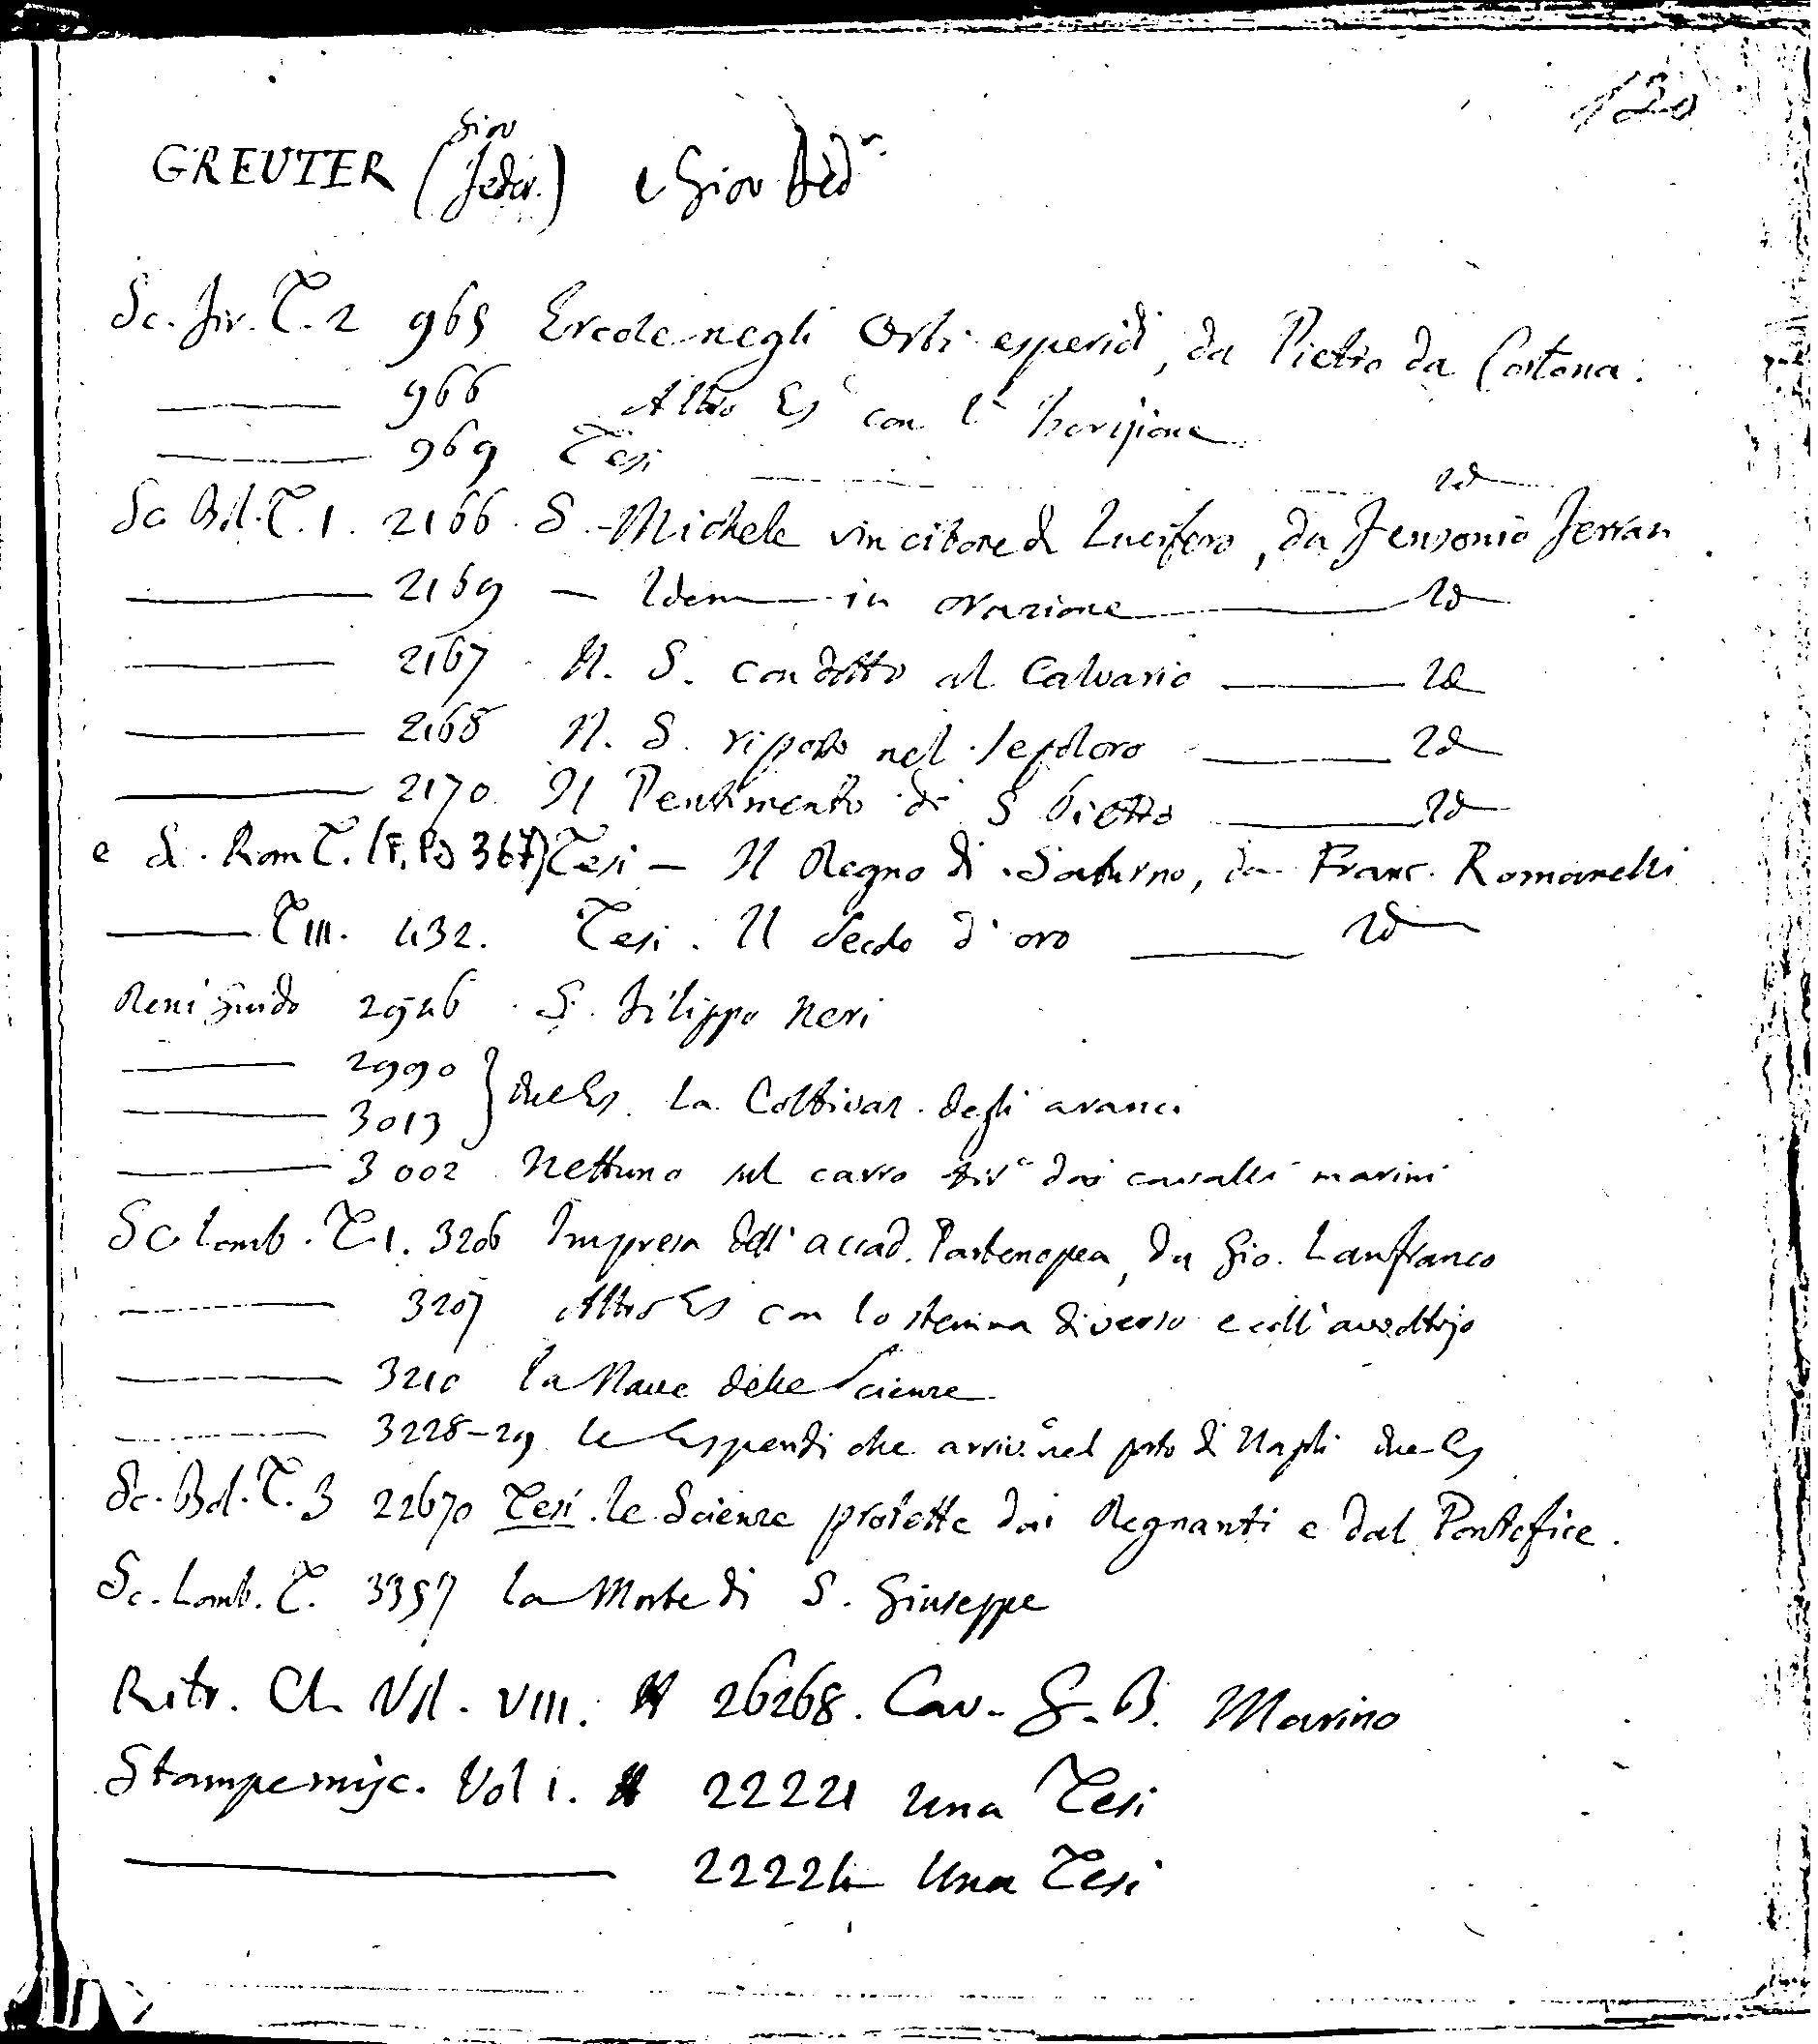 120
GREUTER (Giov Feder.) e Giov Fed.
Sc. Fir. T. 2 965 Ercole negli Orti esperidi, da Pietro da Cortona.
966 Altro Es con l'Iscrizione
969 Tesi Id
Sc Bol. T. 1. 2166. S. Michele vincitore di Lucifero, da Ferran
2169 — Idem in orazione Id
2167 N. S. condotto al Calvario Id
2168 N. S. riposto nel Sepolcro Id
2170 Il Pentimento di S Pietro Id
e Sc. Rom T. 367) Tesi — Il Regno di Saturno, da Franc. Romanelli
T III. 432. Tesi. Il Secolo d'oro Id
Reni Guido 2946 S. Filippo Neri
2990
3013 } due Es. La Coltivaz. degli aranci
3002 Nettuno sul carro tir° dai cavalli marini
Sc Lomb. T. 1. 3206 Impresa dell'accad. Partenopea, da Gio. Lanfranco
3207 Altro Es con lo stemma diverso e coll'avoltojo
3210 La Nave delle Scienze
3228-29 Le Esperidi che arriv.° nel porto di Napoli due Es
Sc. Bol. T. 3 22670 Tesi. Le Scienze protette dai Regnanti e dal Pontefice.
Sc. Lomb. T. 3357 La Morte di S. Giuseppe
Ritr. Cl. Vol. VIII. 26268. Cav. G. B. Marino
Stampe misc. Vol 1. 22221 Una Tesi
22224 Una Tesi